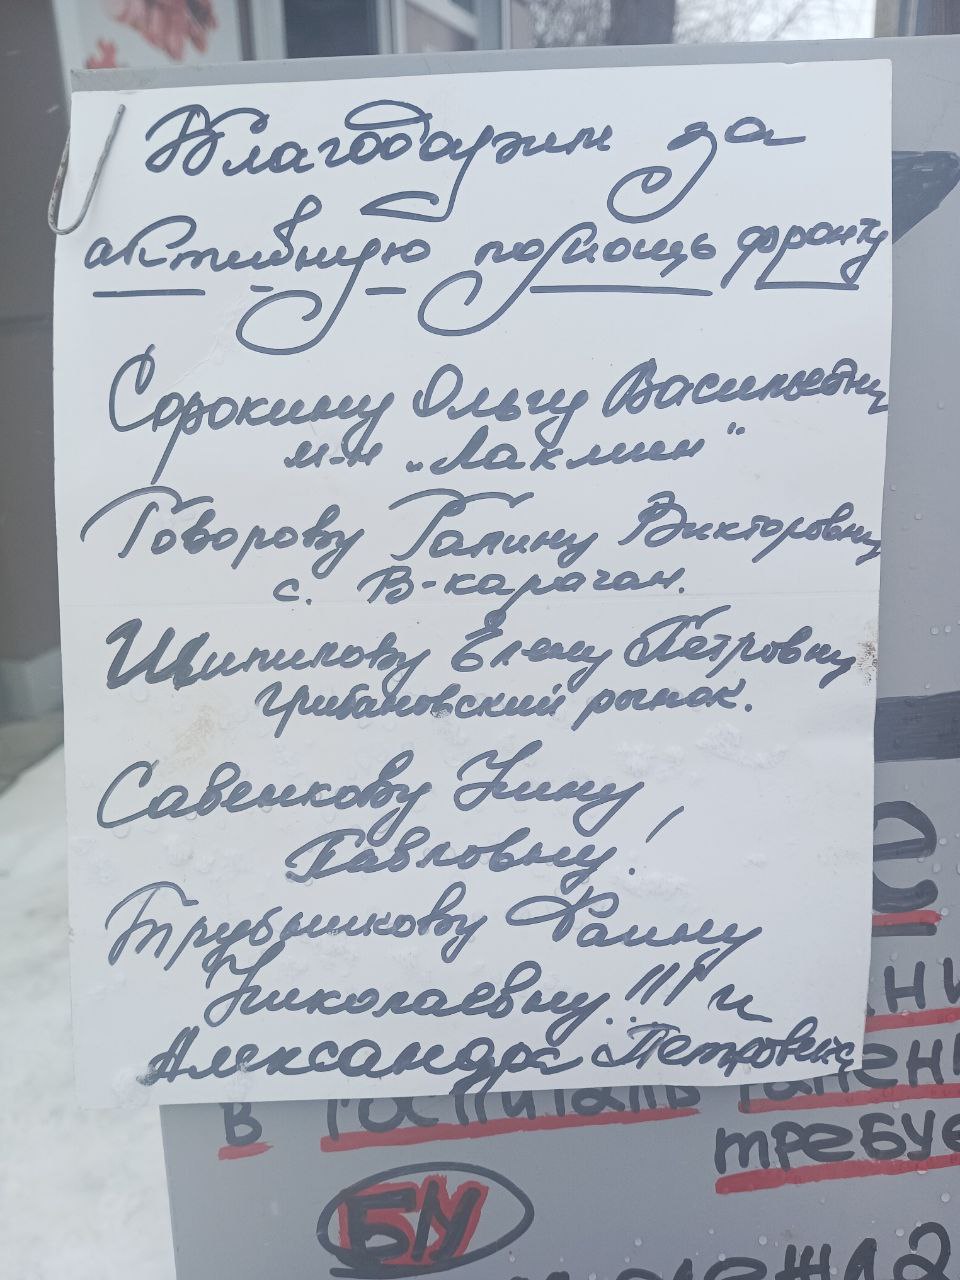 Благодарим за
активную помощь фронту
Сорокину Ольгу Васильевну
м-н „Лаклин"
Говорову Галину Викторовну
с. В-карачан.
Шипилову Елену Петровну
Грибановский рынок.
Савенкову Нину
Павловну!
Трубникову Фаину
Николаевну!!! и
Александра Петровича
е
ани
в госпиталь
требуе
БУ